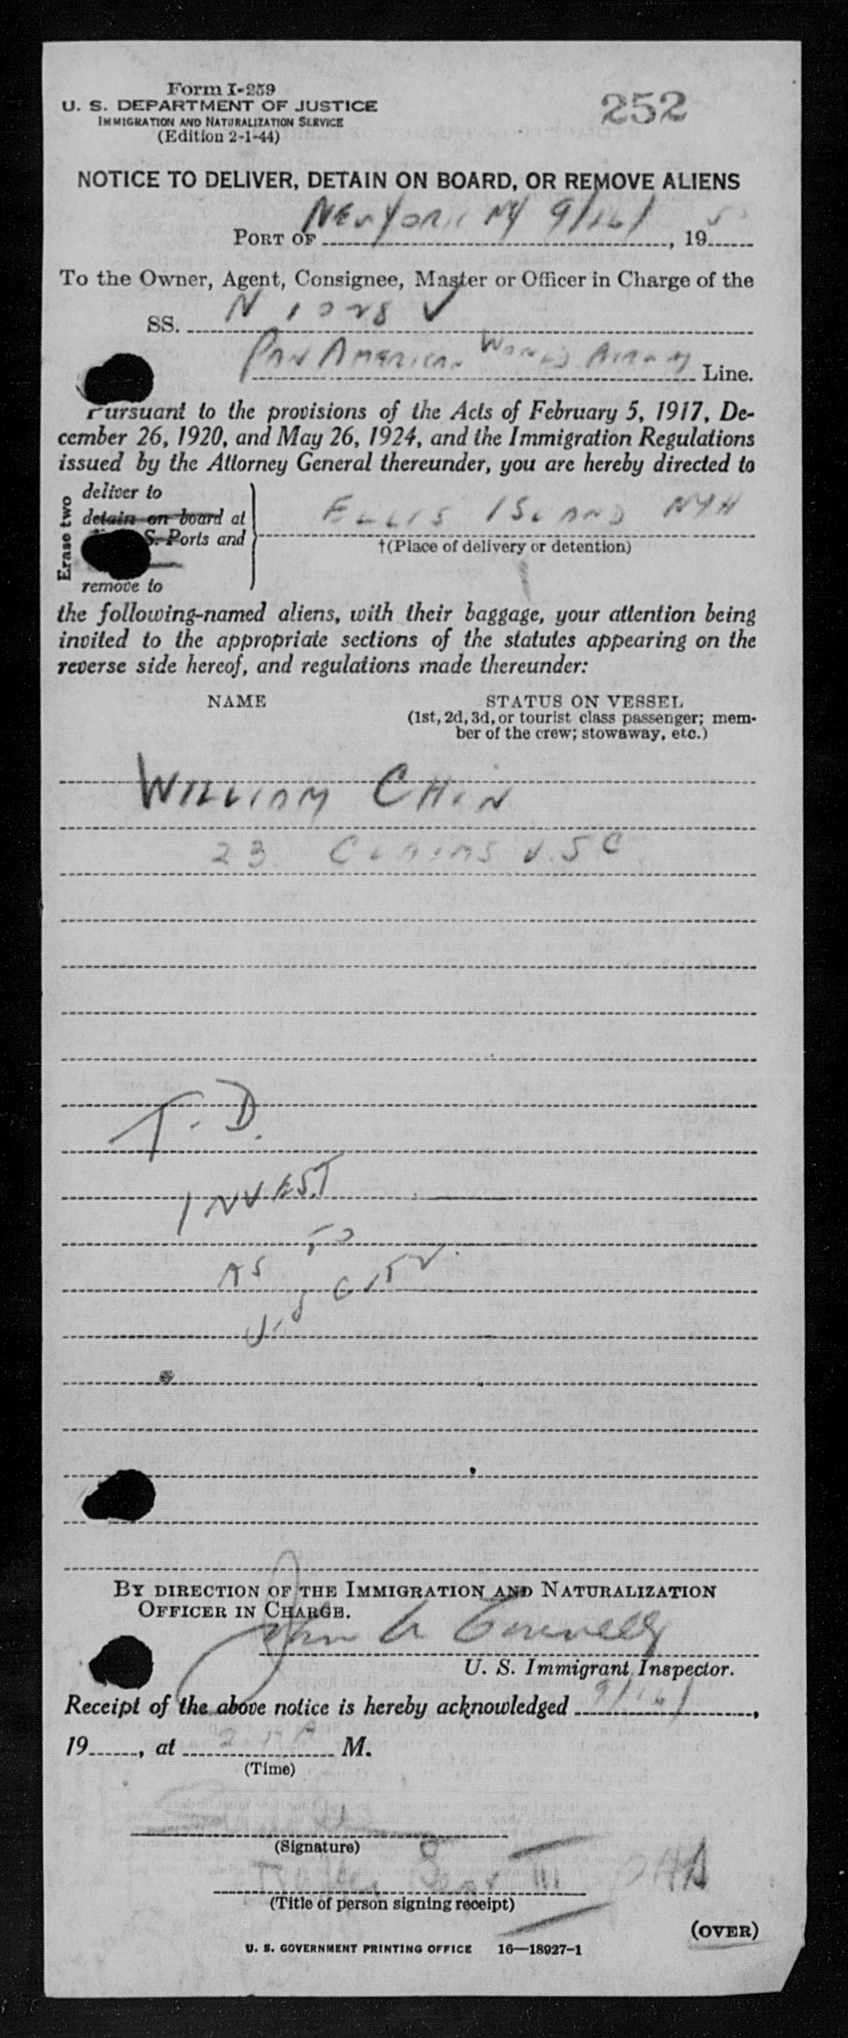 Form I-259
U. S. DEPARTMENT OF JUSTICE
IMMIGRATION AND NATURALIZATION SERVICE
(Edition 2-1-44)
252
NOTICE TO DELIVER, DETAIN ON BOARD, OR REMOVE ALIENS
PORT OF New York NY 9/16/, 19
To the Owner, Agent, Consignee, Master or Officer in Charge of the
SS. N 1028 V
PAN AMERICAN WORLD AIRWAY Line.
Pursuant to the provisions of the Acts of February 5, 1917, De-
cember 26, 1920, and May 26, 1924, and the Immigration Regulations
issued by the Attorney General thereunder, you are hereby directed to
Erase two
deliver to
detain on board at
S. Ports and
remove to
ELLIS ISLAND NYH
†(Place of delivery or detention)
the following-named aliens, with their baggage, your attention being
invited to the appropriate sections of the statutes appearing on the
reverse side hereof, and regulations made thereunder:
NAME STATUS ON VESSEL
(1st, 2d, 3d, or tourist class passenger; mem-
ber of the crew; stowaway, etc.)
WILLIAM CHIN
23 CLAIMS U.S C
T. D.
INVEST
AS TO
U.S CITZ.
BY DIRECTION OF THE IMMIGRATION AND NATURALIZATION
OFFICER IN CHARGE.
John A Connelly
U. S. Immigrant Inspector.
Receipt of the above notice is hereby acknowledged 9/16/,
19, at M.
(Time)
(Signature)
III PAA
(Title of person signing receipt)
(OVER)
U. S. GOVERNMENT PRINTING OFFICE 16—18927-1